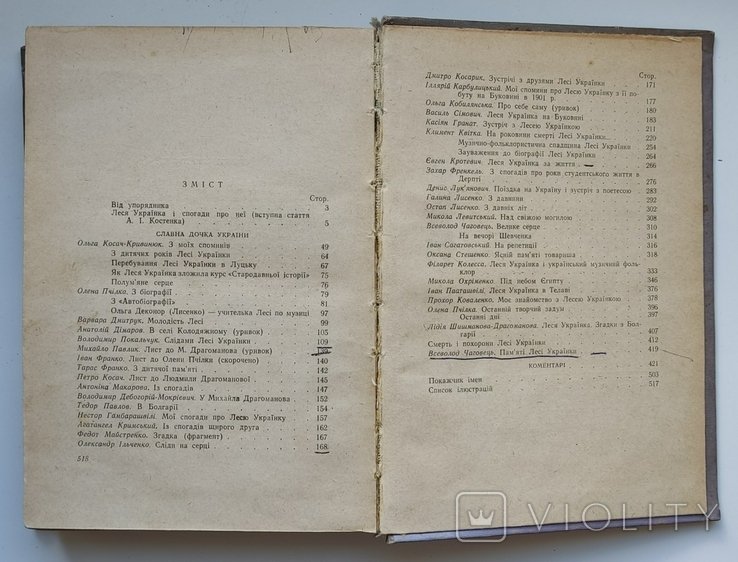 ЗМІСТ
Стор.
Від упорядника 3
Леся Українка і спогади про неї (вступна стаття
А. І. Костенка) 5
СЛАВНА ДОЧКА УКРАЇНИ
Ольга Косач-Кривинюк. З моїх споминів 49
З дитячих років Лесі Українки 64
Перебування Лесі Українки в Луцьку 67
Як Леся Українка вложила курс «Стародавньої історії» 75
Полум'яне серце 76
Олена Пчілка. З біографії 79
З «Автобіографії» 81
Ольга Деконор (Лисенко) — учителька Лесі по музиці 97
Варвара Дмитрук. Молодість Лесі
Анатолій Дімаров. В селі Колодяжному (уривок) 105
Володимир Покальчук. Слідами Лесі Українки 109
Михайло Павлик. Лист до М. Драгоманова (уривок)
Іван Франко. Лист до Олени Пчілки (скорочено) 140
Тарас Франко. З дитячої пам'яті 142
Петро Косач. Лист до Людмили Драгоманової 145
Антоніна Макарова. Із спогадів 147
Володимир Дебогорій-Мокрієвич. У Михайла Драгоманова 152
Тедор Павлов. В Болгарії 154
Нестор Гамбарашвілі. Мої спогади про Лесю Українку 157
Агатангел Кримський. Із спогадів щирого друга 162
Федот Майстренко. Згадка (фрагмент) 167
Олександр Ільченко. Сліди на серці 168
515
Стор.
Дмитро Косарик. Зустрічі з друзями Лесі Українки 171
Іллярій Карбулицький. Мої спомини про Лесю Українку з її по-
буту на Буковині в 1901 р. 177
Ольга Кобилянська. Про себе саму (уривок) 180
Василь Сімович. Леся Українка на Буковині 183
Касіян Гранат. Зустріч з Лесею Українкою 211
Климент Квітка. На роковини смерті Лесі Українки 220
Музично-фольклористична спадщина Лесі Українки 254
Зауваження до біографії Лесі Українки 264
Євген Кротевич. Леся Українка за життя 266
Захар Френкель. З спогадів про роки студентського життя в
Дерпті 276
Денис Лук'янович. Поїздка на Україну і зустріч з поетесою 283
Галина Лисенко. З давнини 292
Остап Лисенко. З давніх літ 302
Микола Левитський. Над свіжою могилою 308
Всеволод Чаговець. Велике серце 310
На вечорі Шевченка 314
Іван Сагатовський. На репетиції 314
Оксана Стешенко. Ясній пам'яті товариша 318
Філарет Колесса. Леся Українка і український музичний фоль-
клор 333
Микола Охріменко. Під небом Єгипту 346
Іван Пааташвілі. Леся Українка в Телаві 376
Прохор Коваленко. Моє знайомство з Лесею Українкою 378
Олена Пчілка. Останній творчий задум 396
Останні дні 397
Лідія Шишманова-Драгоманова. Леся Українка. Згадки з Бол-
гарії 407
Смерть і похорони Лесі Українки 412
Всеволод Чаговець. Пам'яті Лесі Українки 419
КОМЕНТАРІ 421
Покажчик імен 503
Список ілюстрацій 517
VIOLITY